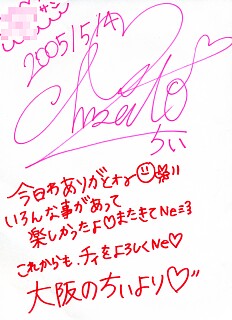 サン
2005/5/14
Chisato
ちぃ
今日わありがとね
いろんな事があって
楽しかったよ♡またきてNeミ3
これからも、チィをよろしくNe♡
大阪のちぃより♡"